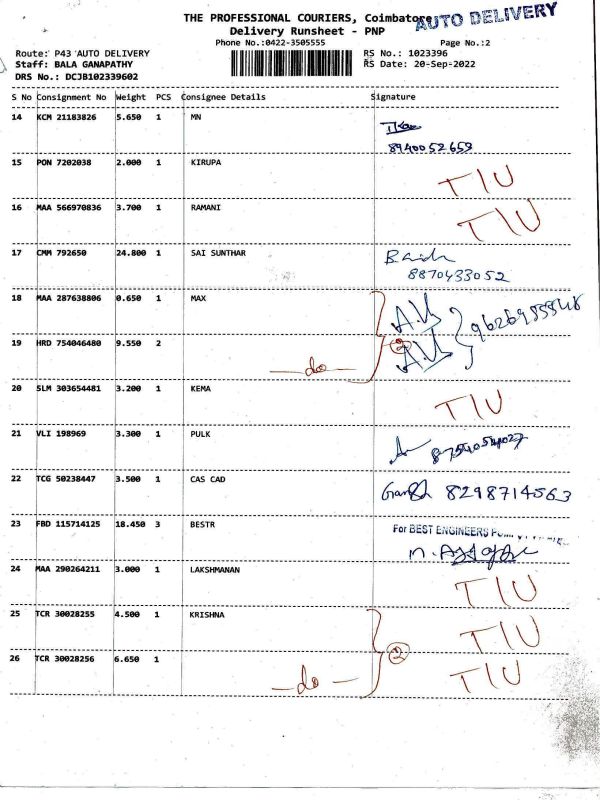 THE PROFESSIONAL COURIERS, Coimbatore
AUTO DELIVERY
Delivery Runsheet - PNP
Phone No.:0422-3505555 Page No.:2
Route: P43 AUTO DELIVERY RS No.: 1023396
Staff: BALA GANAPATHY RS Date: 20-Sep-2022
DRS No.: DCJB102339602
S No Consignment No Weight PCS Consignee Details Signature
14 KCM 21183826 5.650 1 MN
8940052659
15 PON 7202038 2.000 1 KIRUPA TIU
16 MAA 566970836 3.700 1 RAMANI TIU
17 CMM 792650 24.800 1 SAI SUNTHAR
8870433052
18 MAA 287638806 0.650 1 MAX
19 HRD 754046480 9.550 2 2
do
20 SLM 303654481 3.200 1 KEMA TIU
21 VLI 198969 3.300 1 PULK
22 TCG 50238447 3.500 1 CAS CAD 8298714563
23 FBD 115714125 18.450 3 BESTR For BEST ENGINEERS
24 MAA 290264211 3.000 1 LAKSHMANAN TIU
25 TCR 30028255 4.500 1 KRISHNA TIU
2
26 TCR 30028256 6.650 1 do TIU